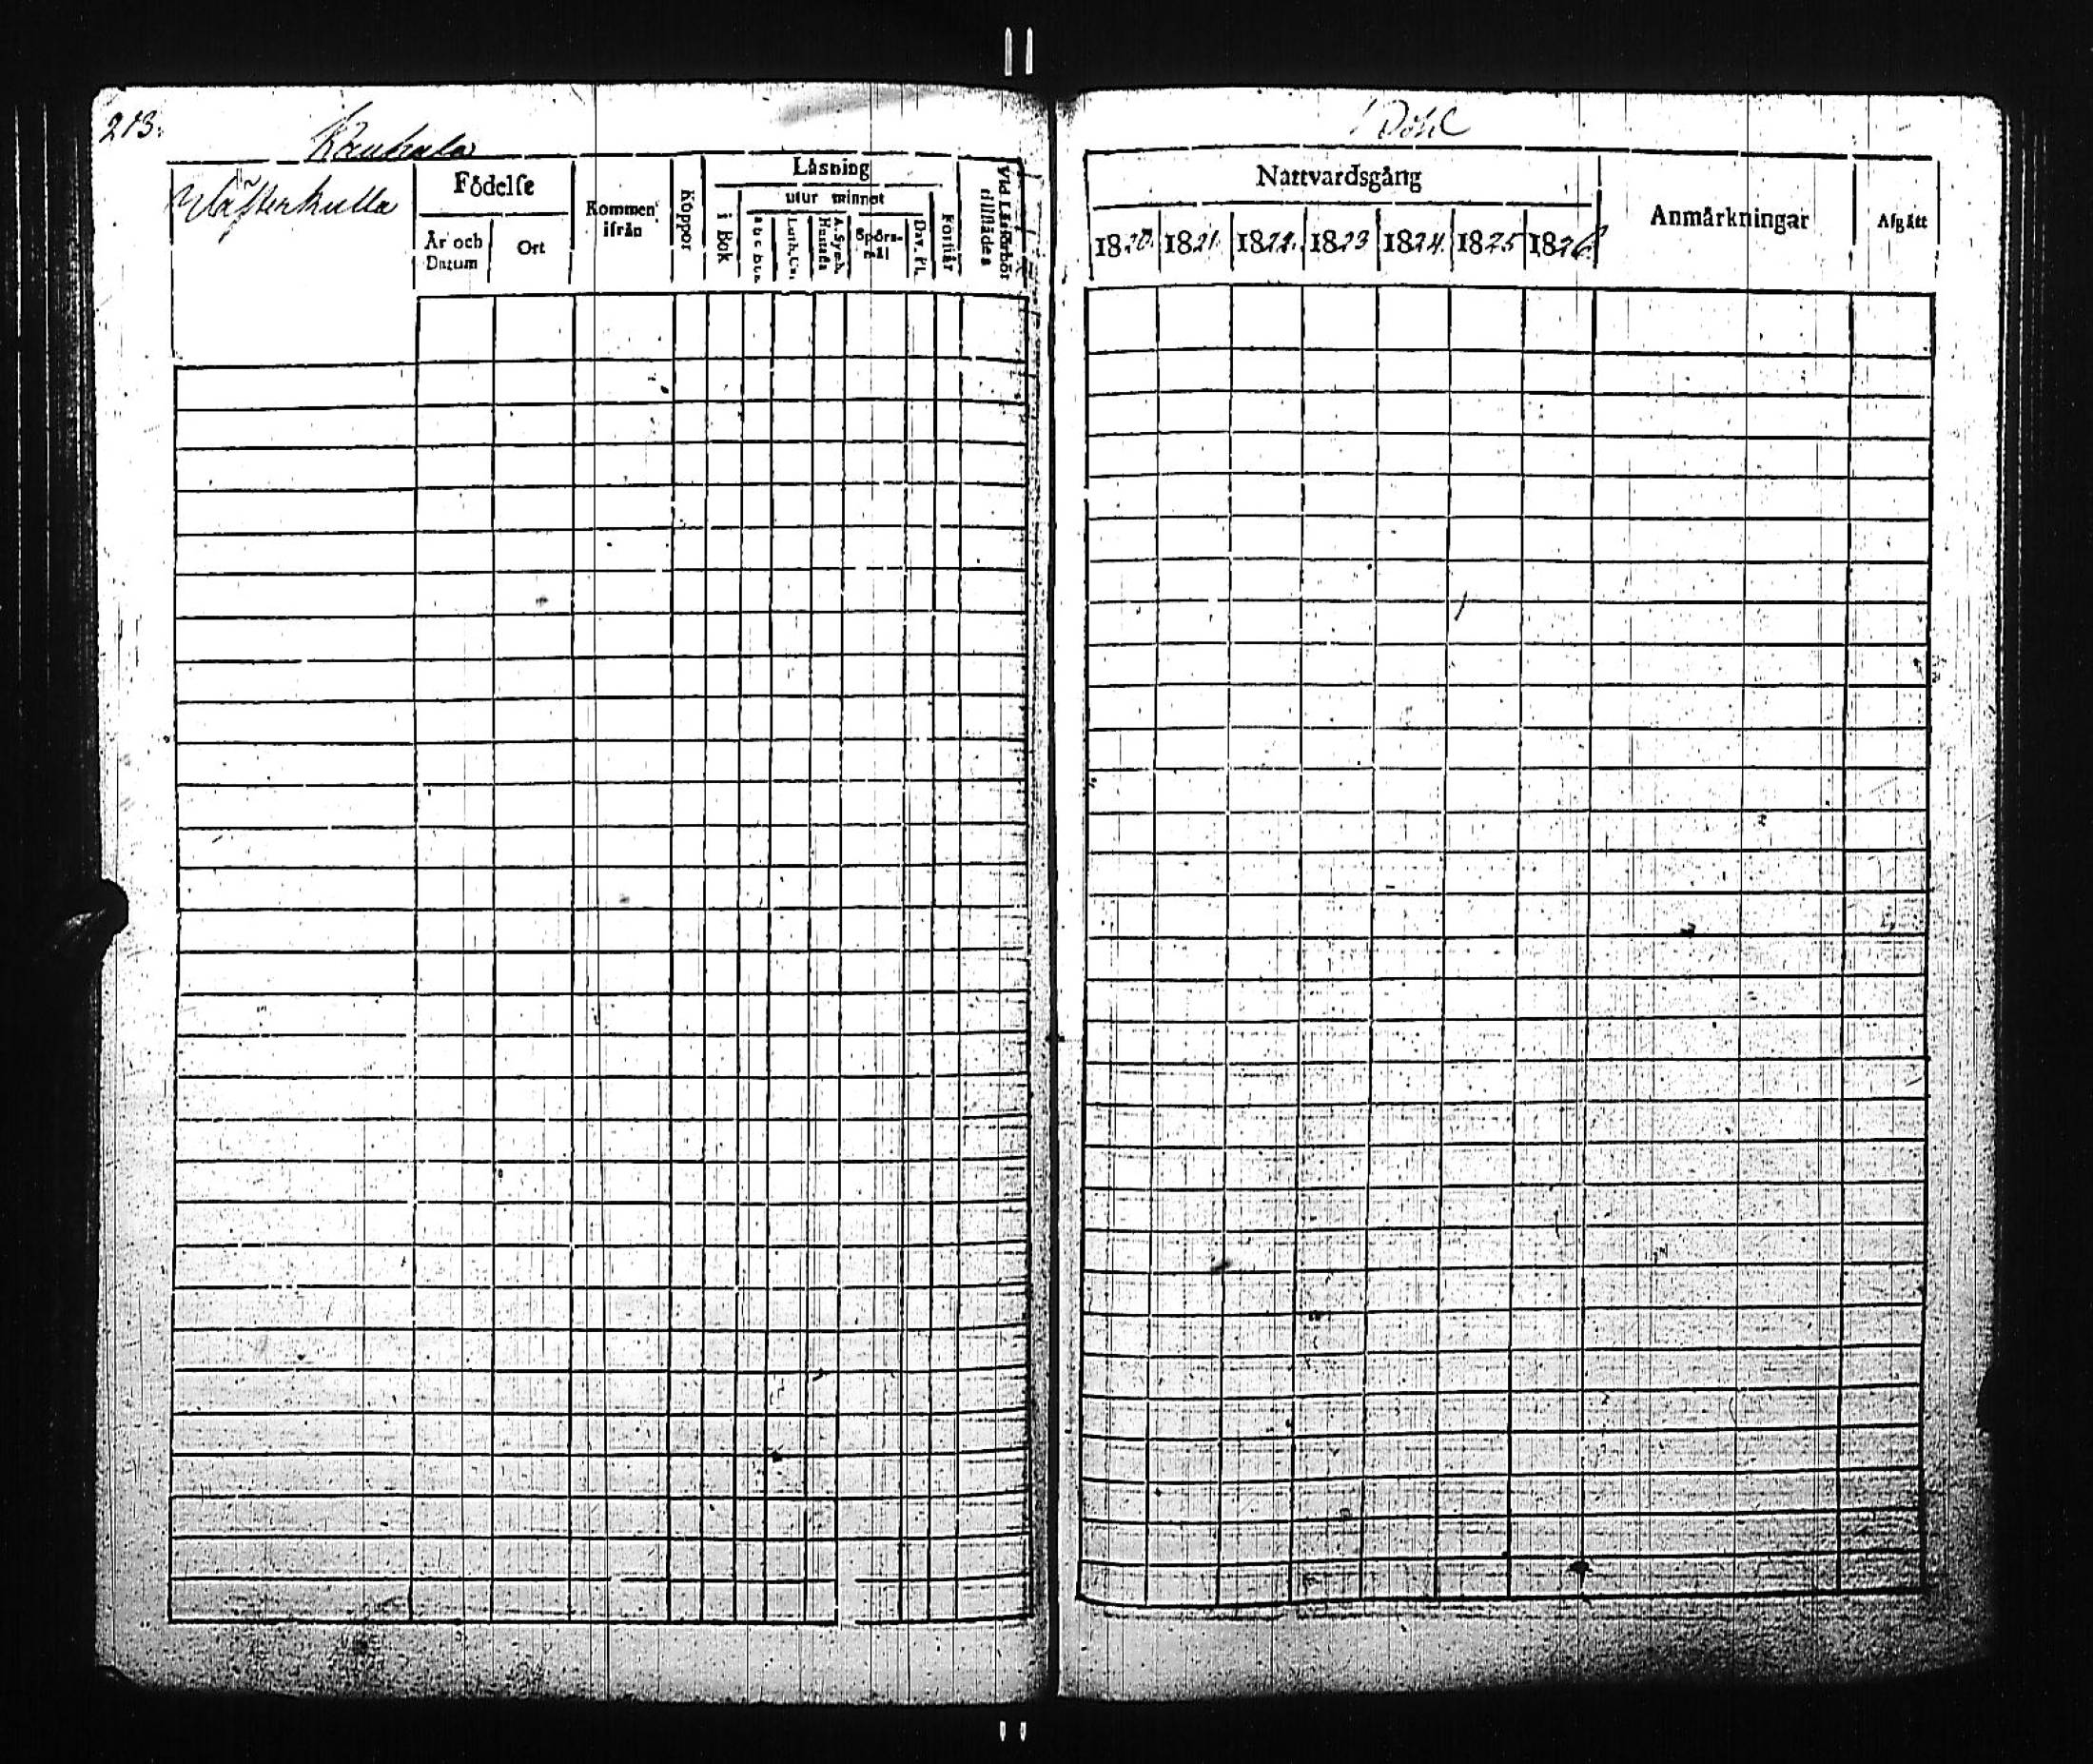 213.
Kauhala
Wästerkulla
Födelse
År och Datum
Ort
Kommen ifrån
Koppor
Läsning
i Bok
utur minnet
a b c Bok
Luth. Cat.
Hustafla
A. Symb.
Spörs-mål
Dav. Ps.
Förstår
Vid Läsförhör tillstädes
Nattvardsgång
1820. 1821. 1822. 1823 1824. 1825 1826
Anmärkningar
Afgått